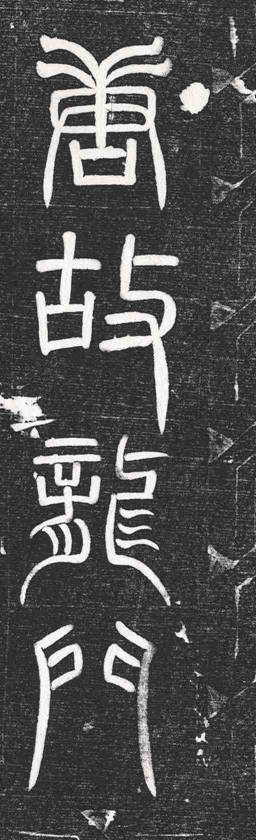 唐故龍門